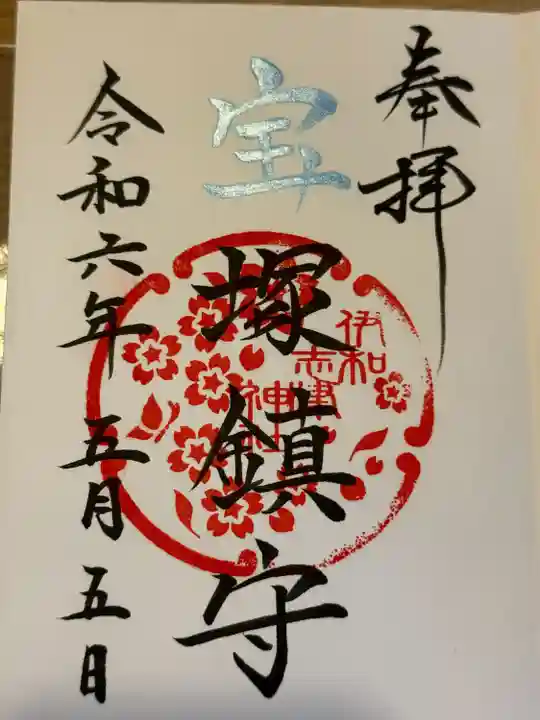 奉拝
宝塚鎮守
伊和
志津
神社
令和六年 五月 五日